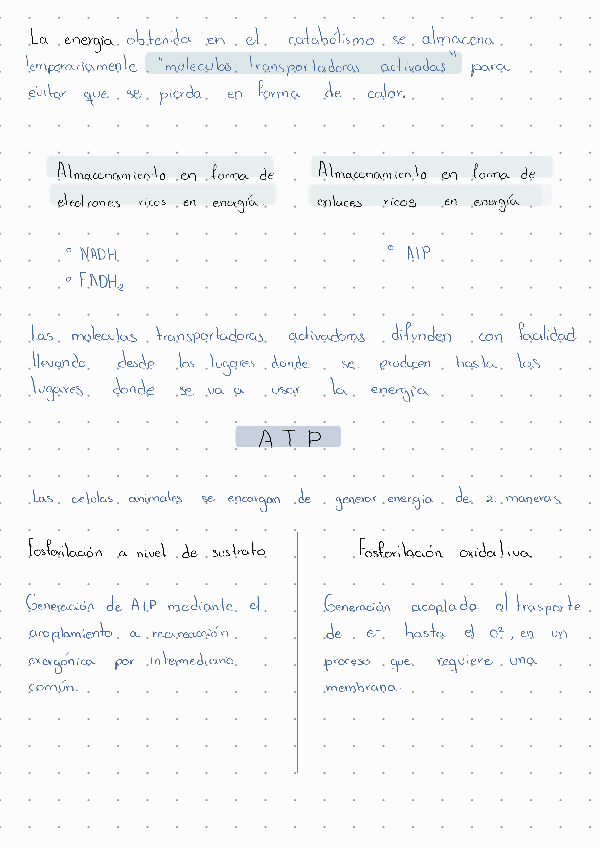 La energía obtenida en el catabolismo se almacena
temporariamente "moleculas transportadoras activadas" para
evitar que se pierda en forma de calor.
Almacenamiento en forma de
electrones ricos en energía.
NADH
FADH₂
Almacenamiento en forma de
enlaces ricos en energía.
ATP
Las moleculas transportadoras activadoras difunden con facilidad
llevando desde los lugares donde se producen hasta los
lugares donde se va a usar la energía
ATP
Las celulas animales se encargan de generar energía de 2 maneras
Fosforilación a nivel de sustrato
Generación de ATP mediante el
acoplamiento a reacción
exergónica por intermediario
común.
Fosforilación oxidativa
Generación acoplada al trasporte
de e⁻ hasta el O², en un
proceso que requiere una
membrana.